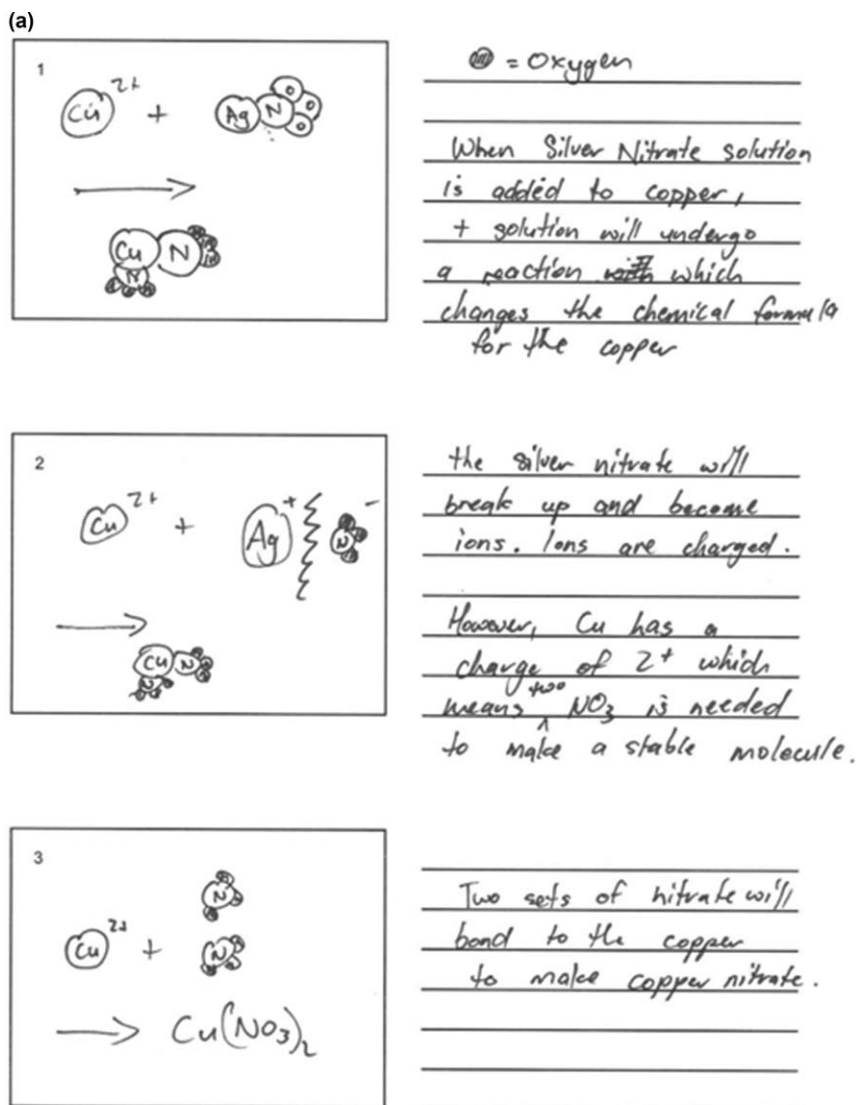 (a)
1
Cu 2+ + Ag N O O O
Cu N
N
= Oxygen
When Silver Nitrate solution
is added to copper,
+ solution will undergo
a reaction which
changes the chemical formula
for the copper
2
Cu 2+ + Ag + N -
Cu N
N
the silver nitrate will
break up and become
ions. Ions are charged.
However, Cu has a
charge of 2+ which
means two NO3 is needed
to make a stable molecule.
3
N
Cu 2+ +
N
Cu(NO3)2
Two sets of nitrate will
bond to the copper
to make copper nitrate.